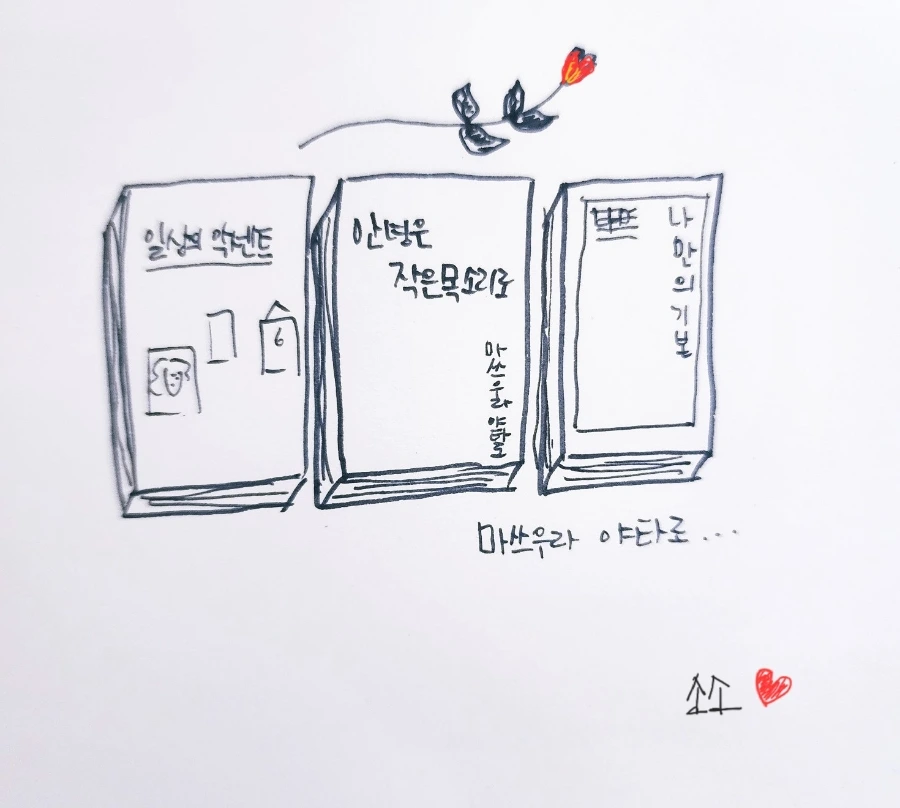 일상의 악센트
6
안녕은
작은 목소리로
마쓰우라 야타로
나만의 기본
마쓰우라 야타로...
쏘